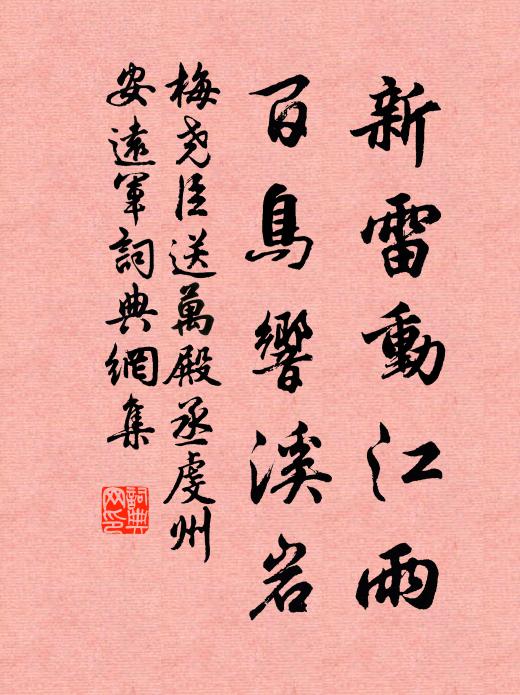 新雷動江雨
百鳥響溪岩
梅尧臣送萬殿丞虔州
安遠軍詞典網集
詞典
网印